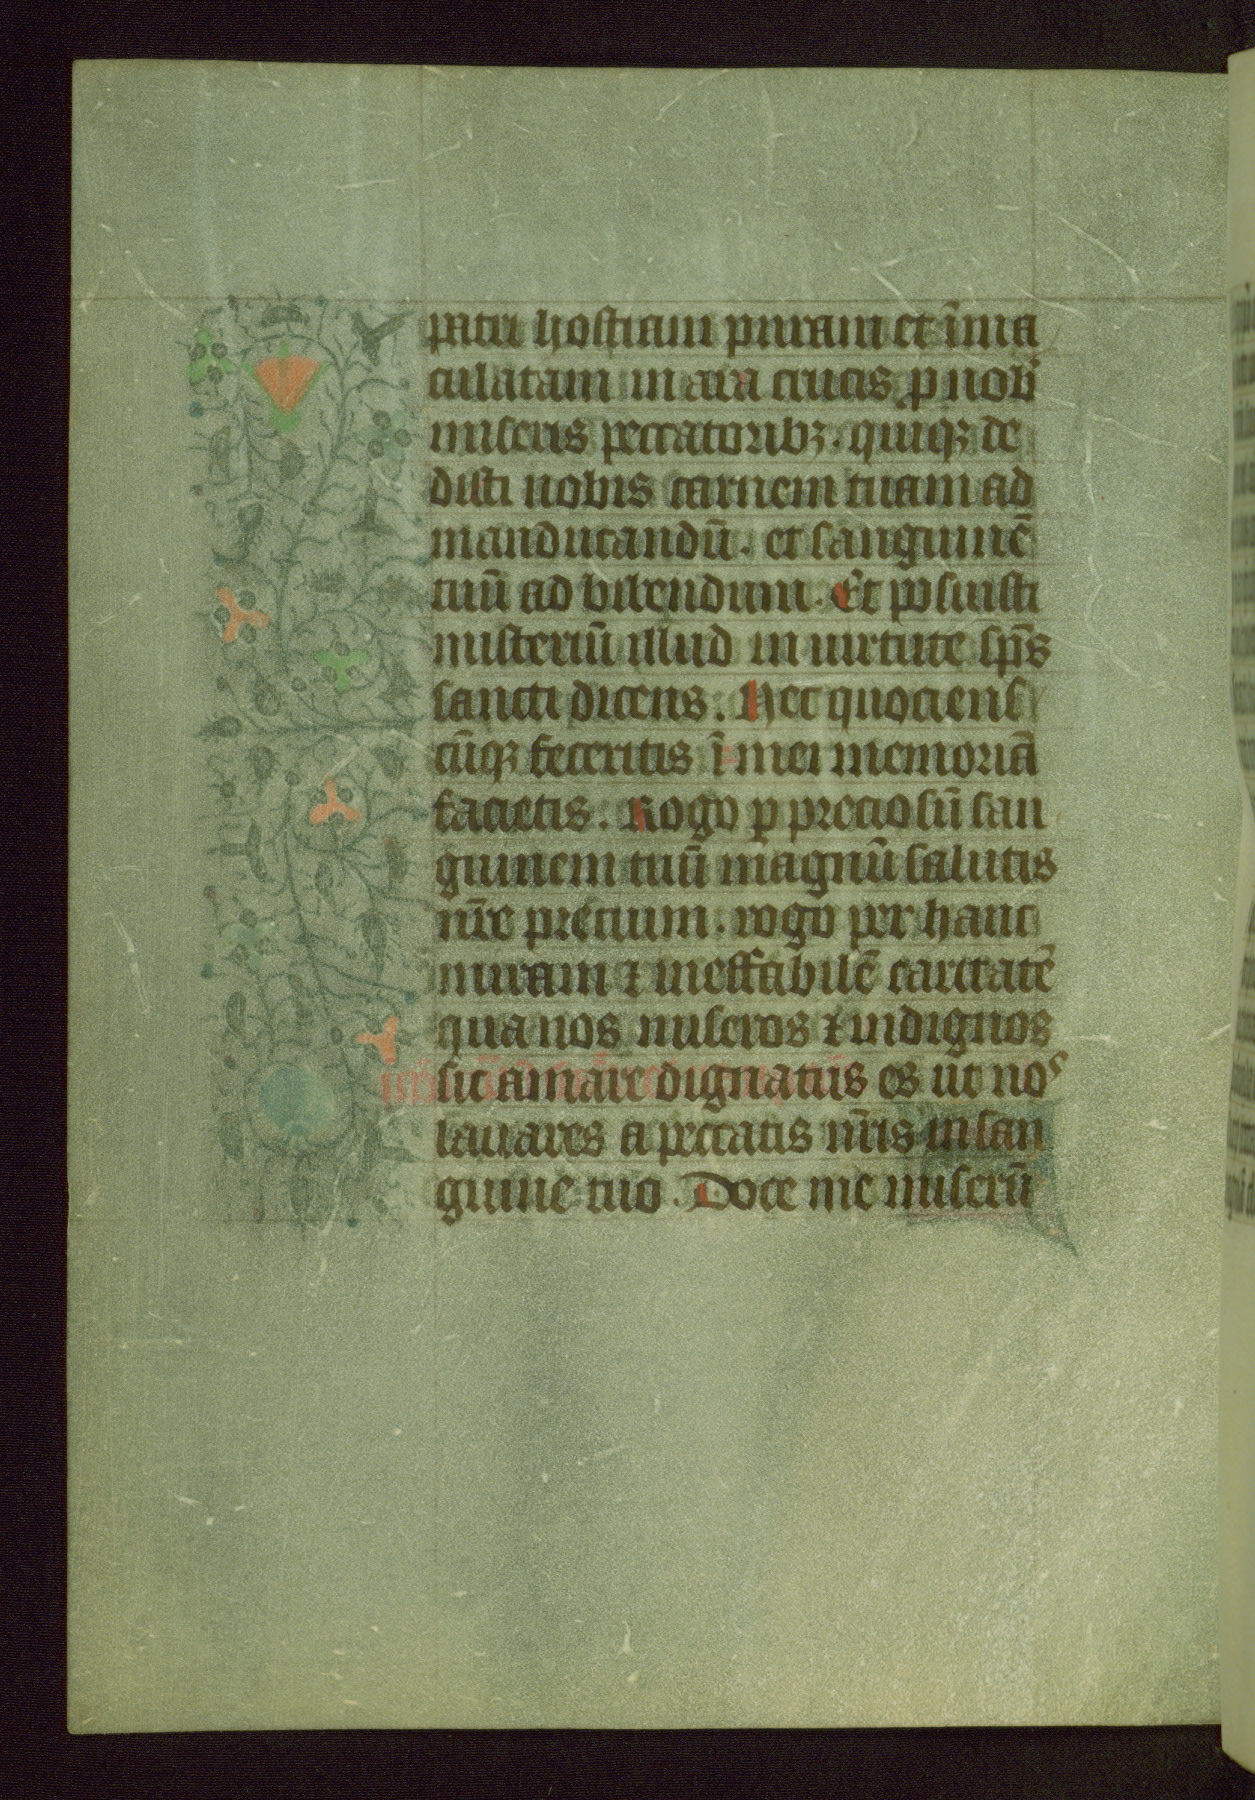 patri hostiam puram et īma
culatam in ara crucis ꝓ nob'
miseris peccatoribꝫ. quiqꝫ de
disti nobis carnem tuam ad
manducandū. et sanguinē
tuū ad bibendum. Et posuisti
misteriū illud in uirtute sp̄s
sancti dicens. Hec quociens
cūqꝫ feceritis ī mei memoriā
facietis. Rogo ꝑ preciosū san
guinem tuū magnū salutis
nr̄e precium. rogo per hanc
miram ⁊ ineffabilē caritatē
qua nos miseros ⁊ indignos
sic amare dignatus es ut nos
lauares a peccatis nr̄is in san
guine tuo. Doce me miserū